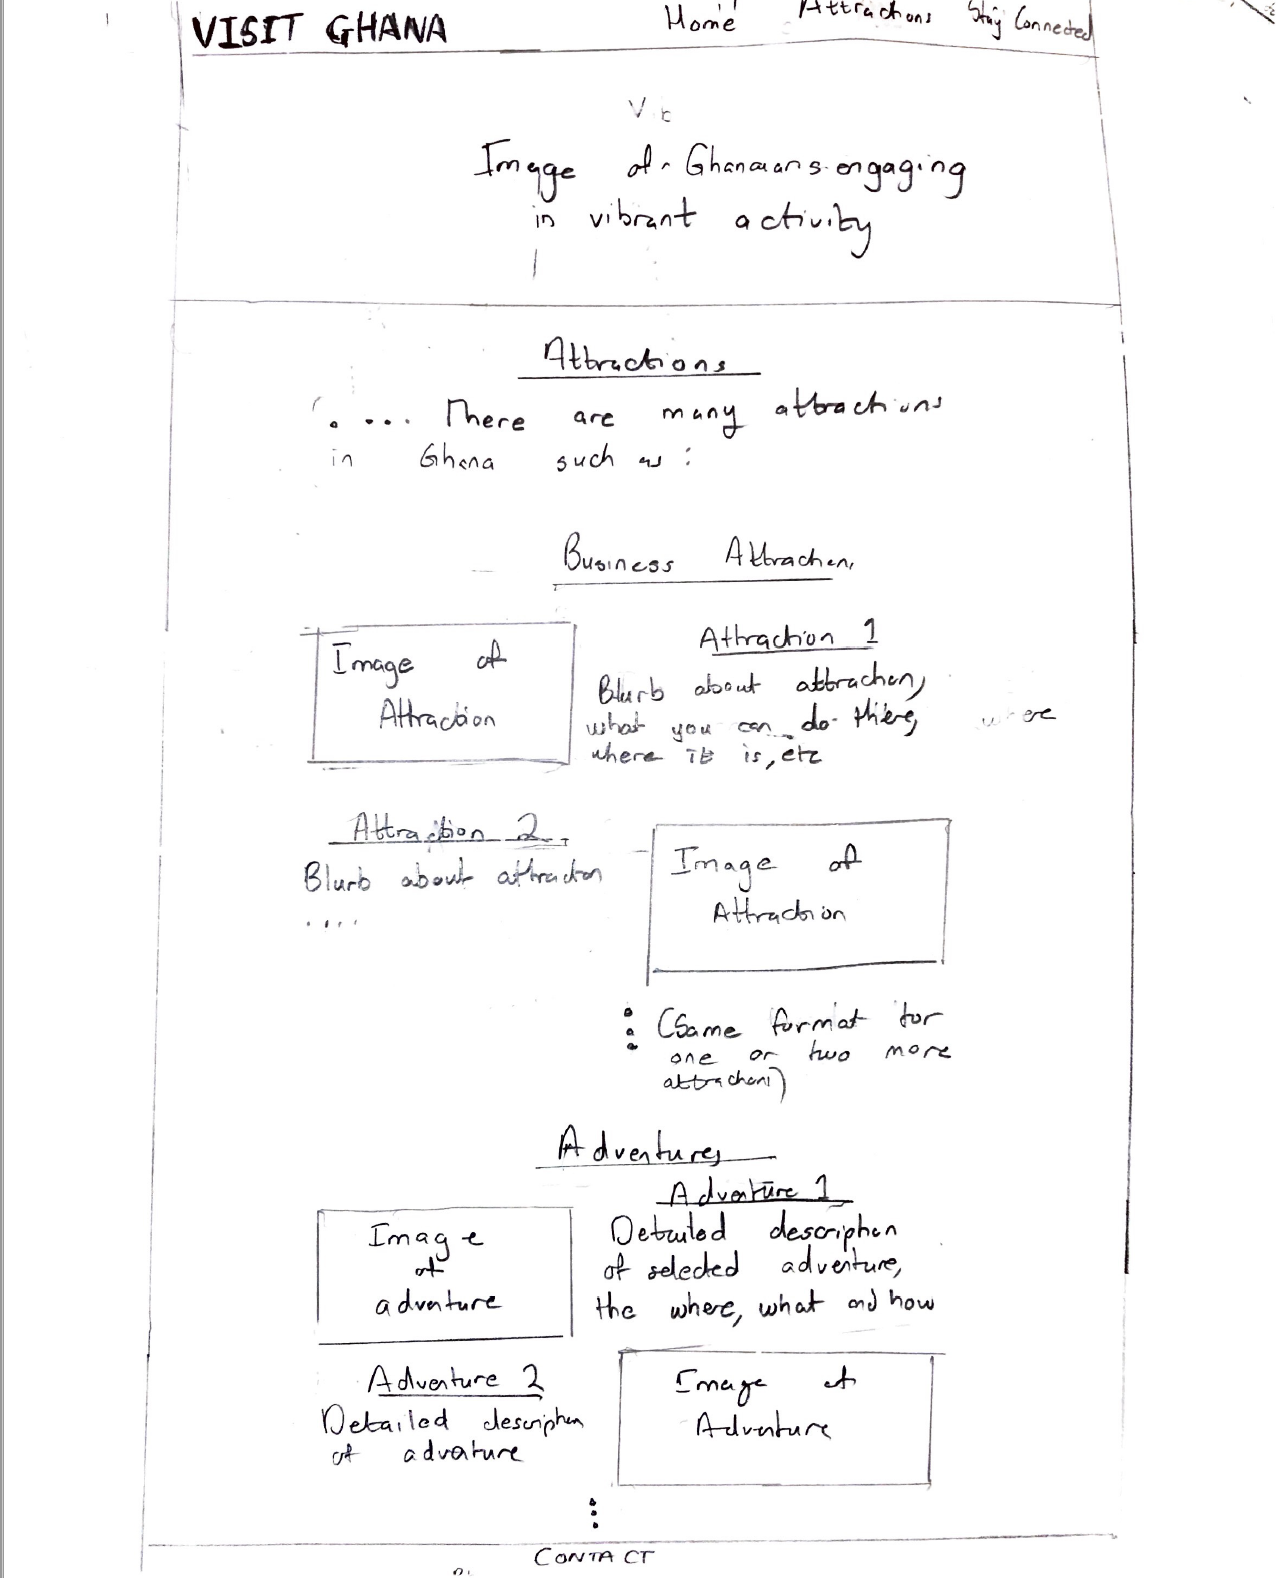 VISIT GHANA
Home Attractions Stay Connected
Image of Ghanaians engaging
in vibrant activity
Attractions
.... There are many attractions
in Ghana such as :
Business Attraction
Image of
Attraction
Attraction 1
Blurb about attraction,
what you can do there,
where it is, etc
Attraction 2
Blurb about attraction
....
Image of
Attraction
(Same format for
one or two more
attractions)
Adventures
Image
of
adventure
Adventure 1
Detailed description
of selected adventure,
the where, what and how
Adventure 2
Detailed description
of adventure
Image of
Adventure
CONTACT